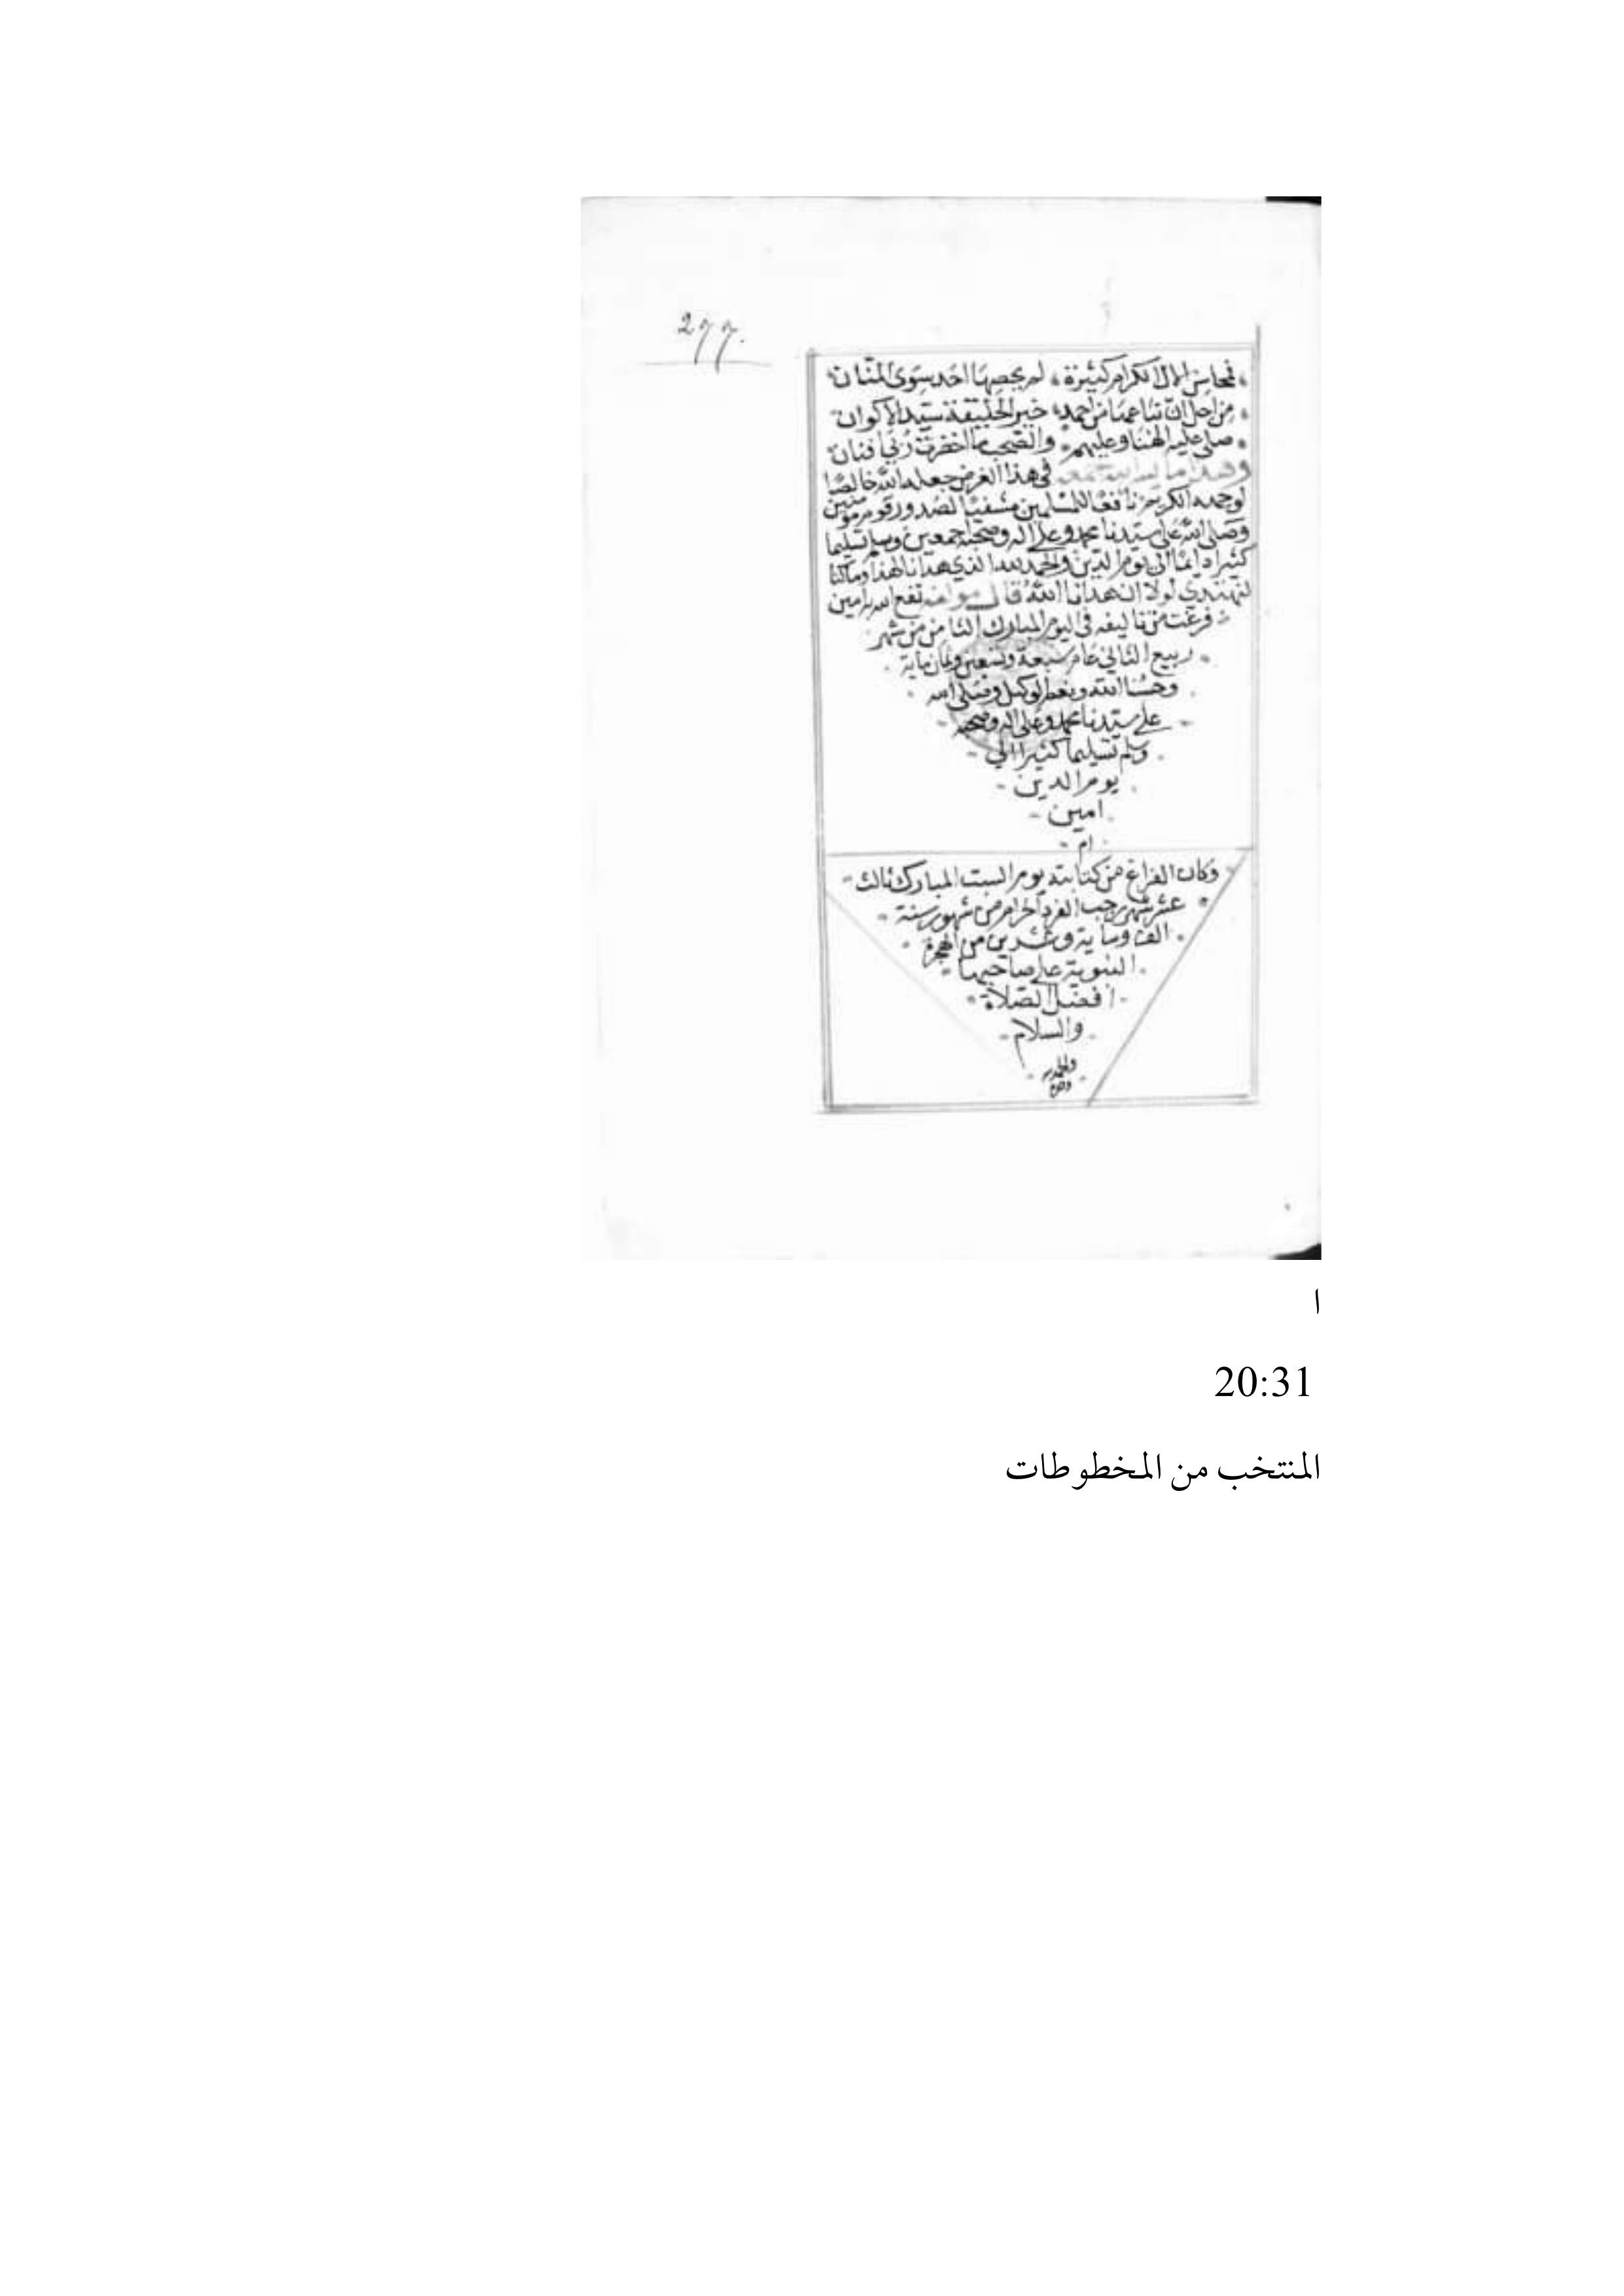 277.
فمحاسن الال الكرام كثيرة، لم يحصها احد سوى المنان
من اجل ان تباعهما من احمد، خير الخليقة سيد الاكوان
صلى عليه الهنا وعليهم والصحب ما اخضرت ربى افنان
وهذا ما في هذا الغرض جعله الله خالصًا
لوجهه الكريم نافعًا للمسلمين مشفيًا لصدور قوم مومنين
وصلى الله على سيدنا محمد وعلى اله وصحبه اجمعين وسلم تسليما
كثيرا دايمًا الى يوم الدين والحمد لله الذي هدانا لهذا وما كنا
لنهتدي لولا ان هدانا الله قال مولفه نفع الله به امين
فرغت من تاليفه في اليوم المبارك الثامن من شهر
ربيع الثاني عام سبعة وتسعين وثمان ماية
وحسبنا الله ونعم الوكيل وصلى الله
على سيدنا محمد وعلى اله وصحبه
وسلم تسليما كثيرا الي
يوم الدين
امين
ام
وكان الفراغ من كتابته يوم السبت المبارك ثالث
عشر شهر رجب الفرد الحرام من شهور سنة
الف وماية وعشرين من الهجرة
النبوية على صاحبها
افضل الصلاة
والسلام
والحمد لله
وحده
ا
20:31
المنتخب من المخطوطات